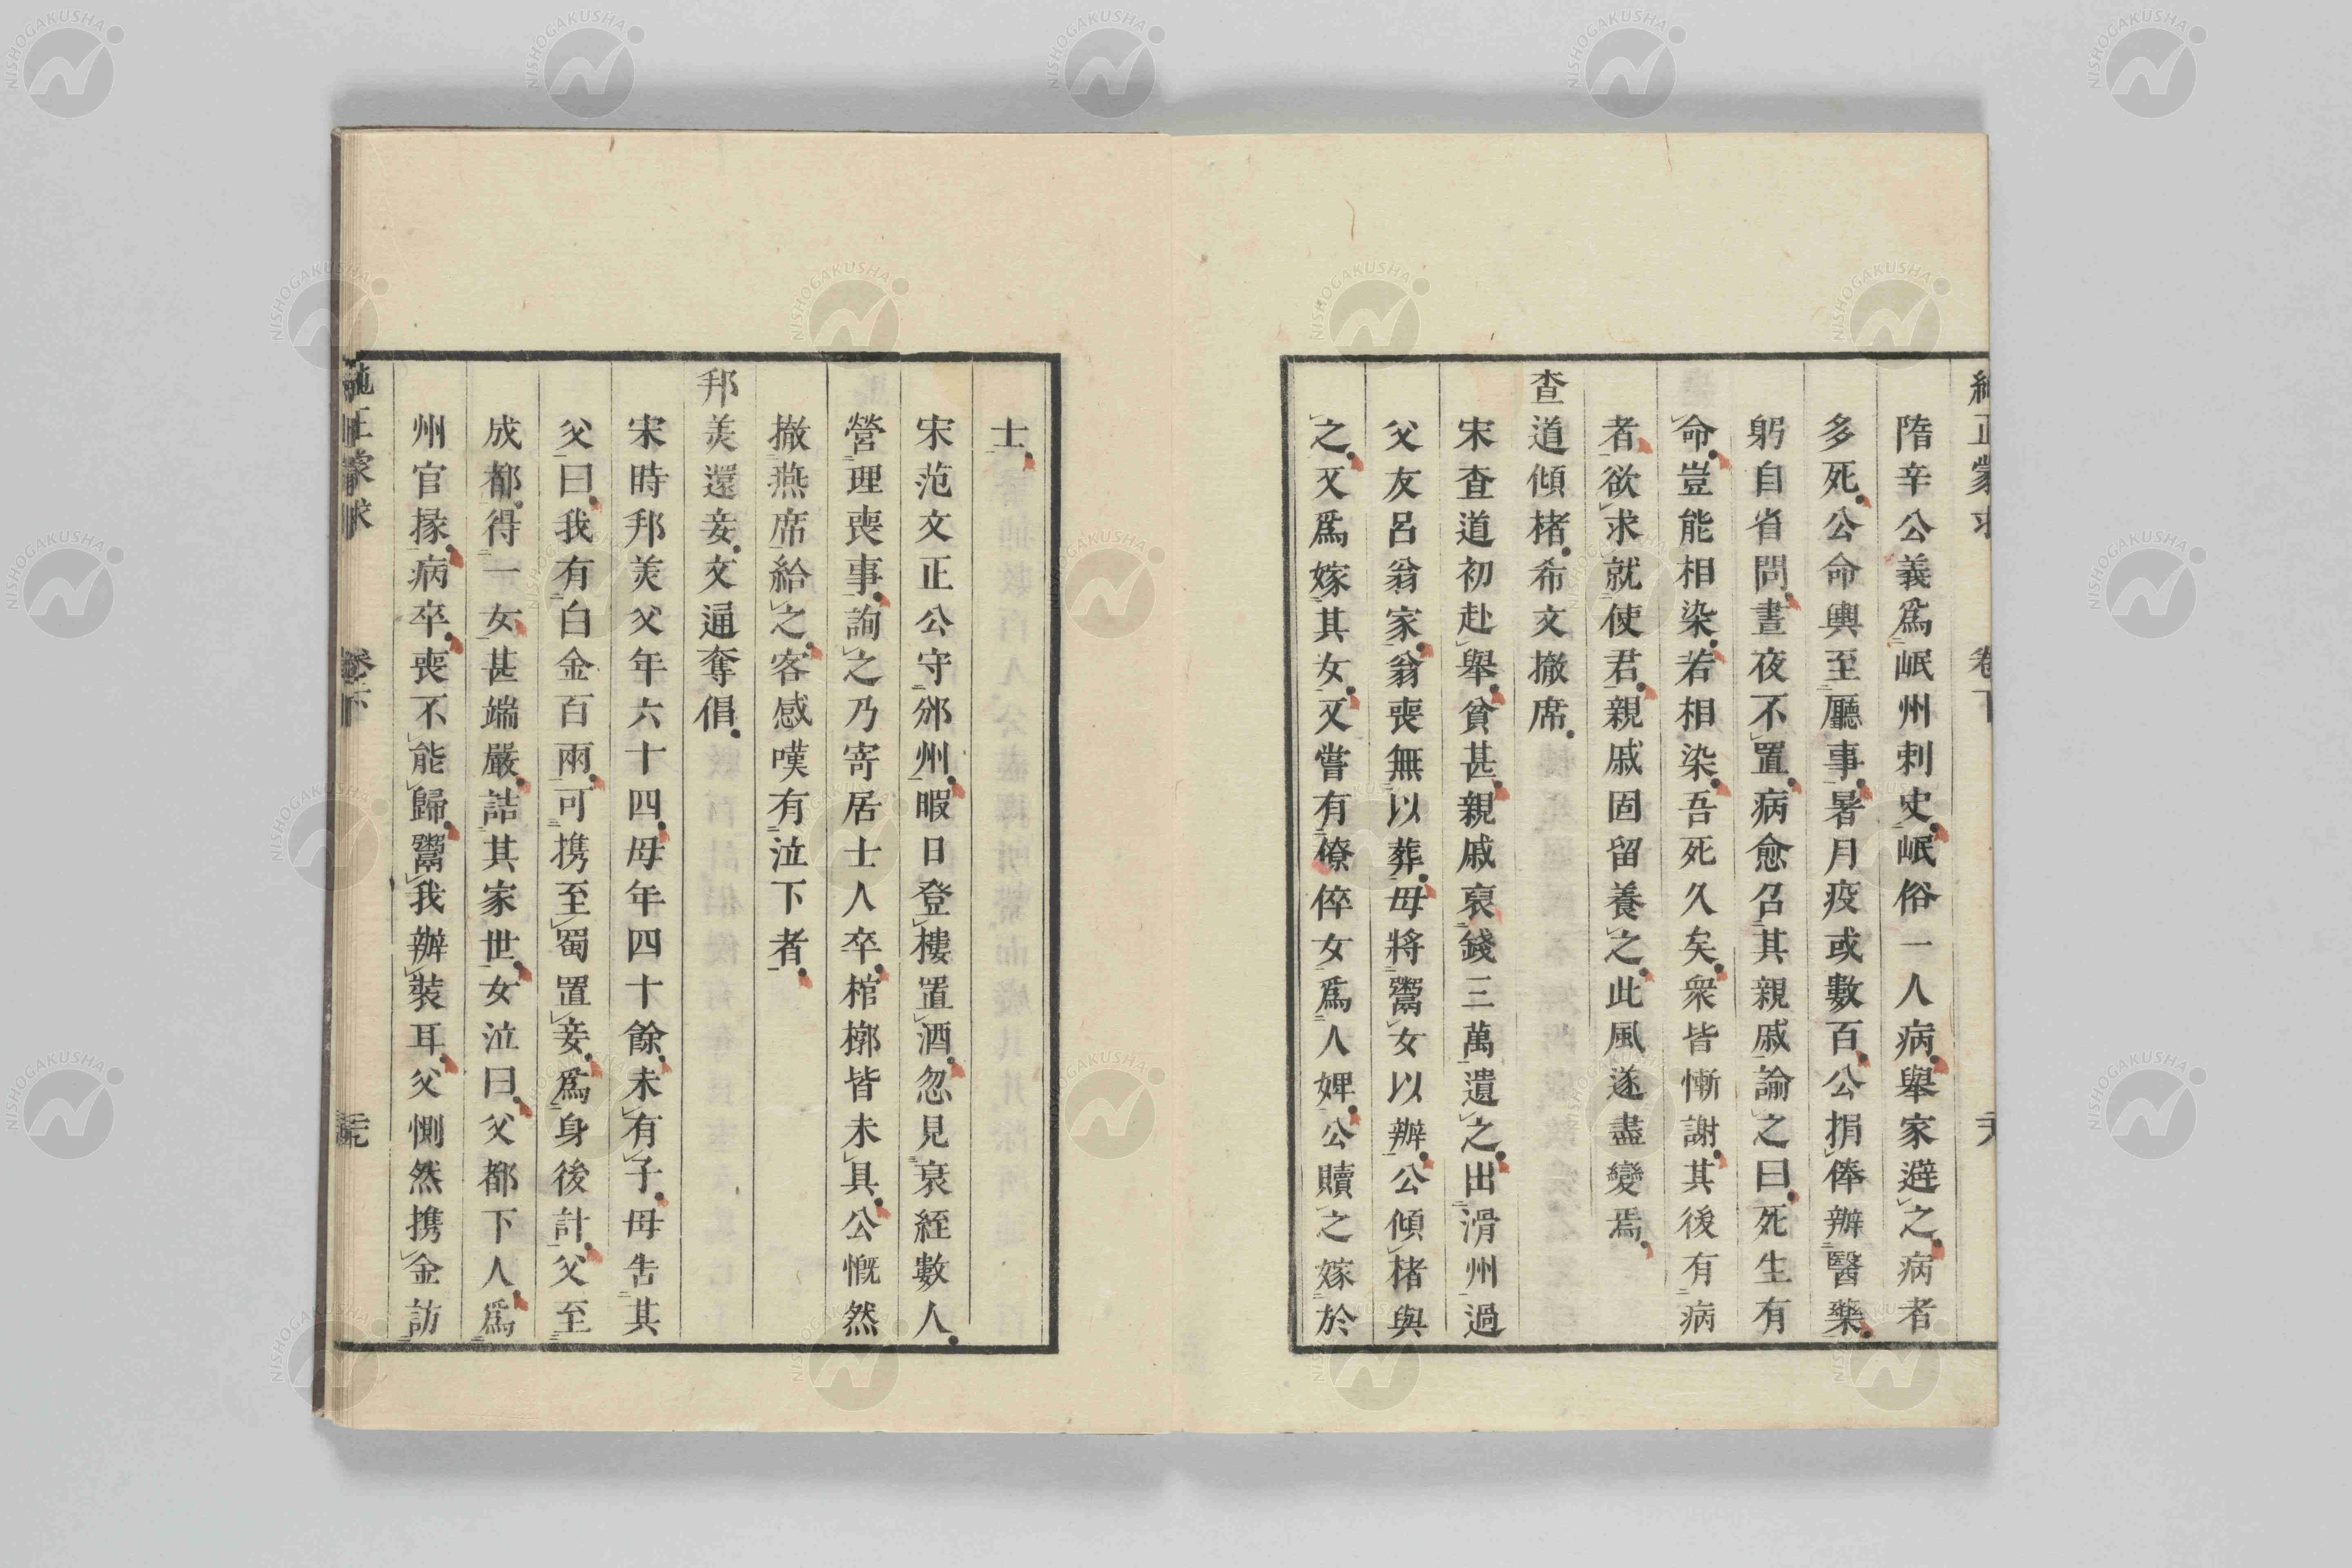 純正蒙求 卷下
隋辛公義爲岷州刺史岷俗一人病舉家避之病者
多死公命輿至廳事暑月疫或數百公捐俸辦醫藥
躬自省問晝夜不置病愈召其親戚諭之曰死生有
命豈能相染若相染吾死久矣衆皆慚謝其後有病
者欲求就使君親戚固留養之此風遂盡變焉
查道傾楮希文撤席
宋查道初赴舉貧甚親戚裒錢三萬遺之出滑州過
父友呂翁家翁喪無以葬母將鬻女以辦公傾楮與
之又爲嫁其女又嘗有僚倅女爲人婢公贖之嫁於
士
宋范文正公守邠州暇日登樓置酒忽見衰絰數人
營理喪事詢之乃寄居士人卒棺槨皆未具公慨然
撤燕席給之客感嘆有泣下者
邦美還妾文通奪倡
宋時邦美父年六十四母年四十餘未有子母告其
父曰我有白金百兩可携至蜀置妾爲身後計父至
成都得一女甚端嚴詰其家世女泣曰父都下人爲
州官掾病卒喪不能歸鬻我辦裝耳父惻然携金訪
純正蒙求 卷下
NISHOGAKUSHA